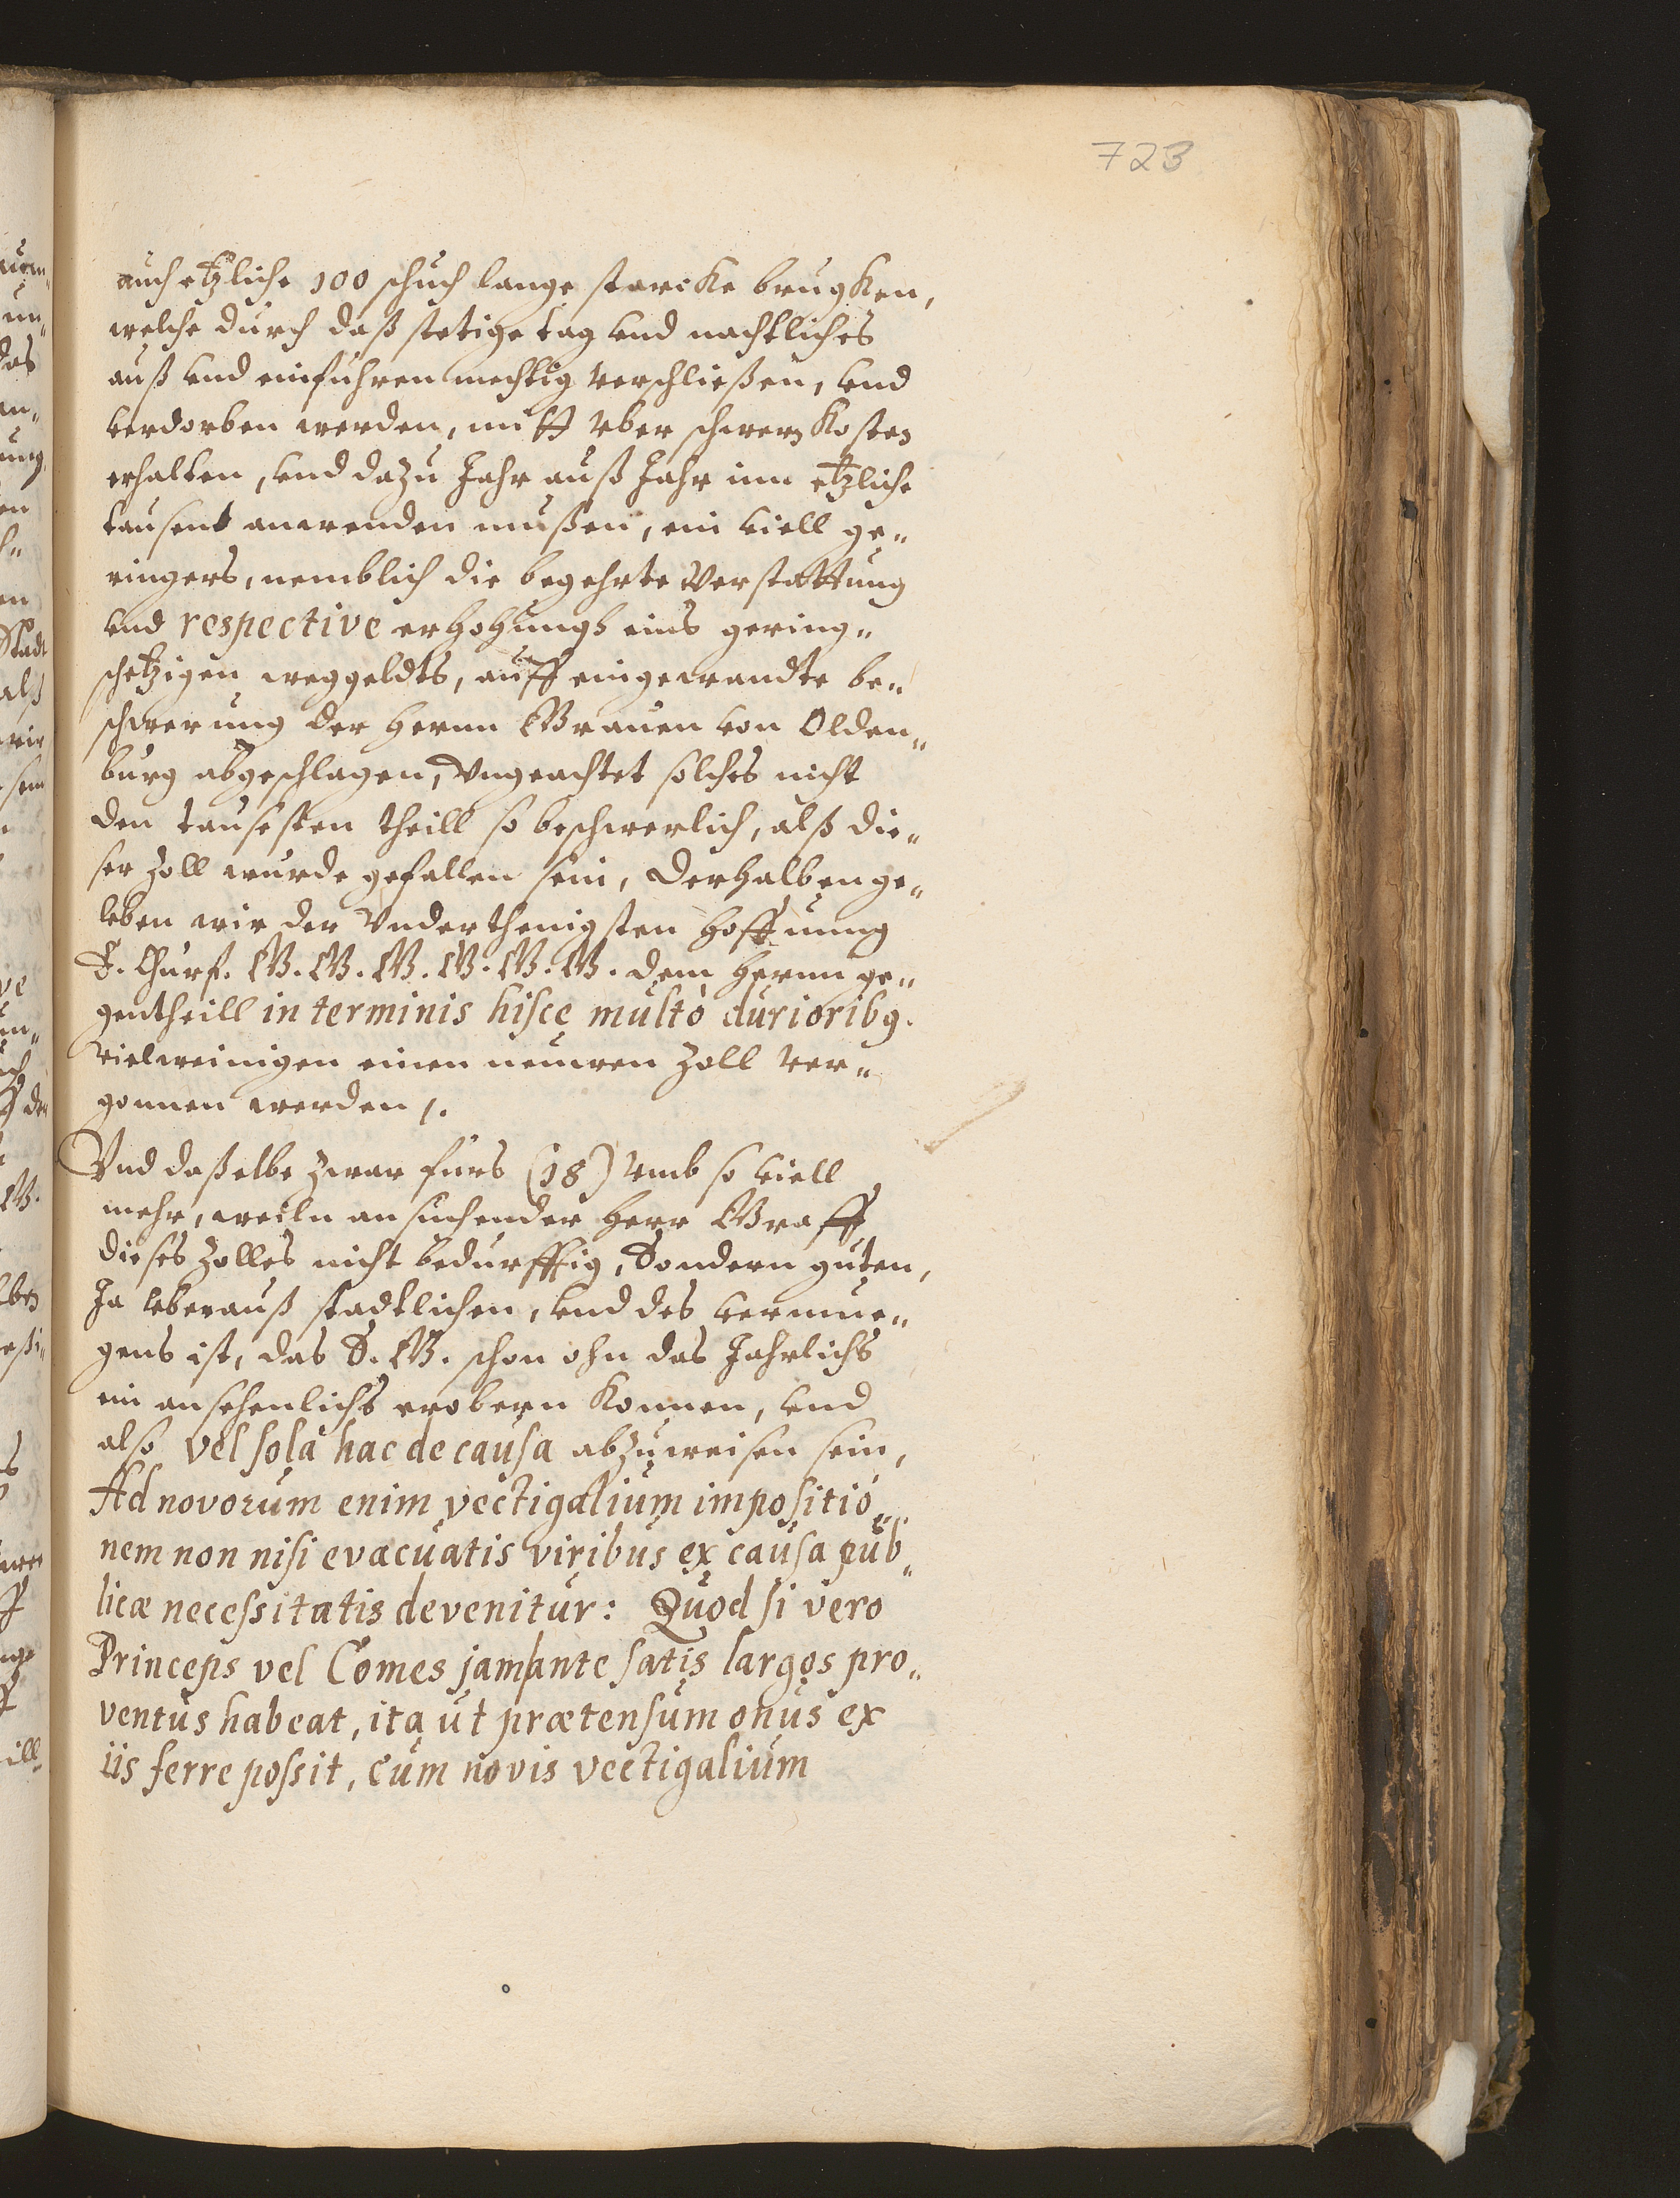 723
auch etzliche 100 schuch lange starcke brugken,
welche durch daß stetige tag vnd nachtliches
auß vnd einfuhren mechtig verschließen, vnd
verdorben werden, mitt vber schweren kosten
erhalten, vnd dazu Jahr auß Jahr inn etzliche
tausent anwenden mußen, ein viell ge„
ringers, nemblich die begehrte verstattung
vnd respective erhohungh eins gering„
schetzigen weggeldts, auff eingewandte be„
schwerung der Herrn Grauen von Olden„
burg abgeschlagen, Vngeachtet solches nicht
den tausesten theill so beschwerlich, alß die„
ser Zoll wurde gefallen sein, Derhalben ge„
leben wir der Vnderthenigsten hoffnung
E. Churf. G. G. G. G. G. G. dem herrn ge„
gentheill in terminis hisce multò durioribg.
vielweinigen einen neuwen Zoll ver„
gonnen werden /.
Vnd daßelbe zwar furs (18) vmb so viell
mehr, weiln ansuchender Herr Graff
dieses Zolles nicht bedurfftig, Sondern guten,
Ja vberauß stadtlichen, vnd des vermue„
gens ist, das S. G. schon ohn das Jahrlichs
ein ansehenlichs erobern konnen, vnd
also vel solâ hac de causa abzuweisen sein,
Ad novorum enim vectigalium impositio„
nem non nisi evacuatis viribus ex causa pub„
licæ necessitatis devenitur: Quod si vero
Princeps vel Comes jam ante satis largos pro„
ventus habeat, ita ut prætensum onus ex
iis ferre possit, cum novis vectigalium